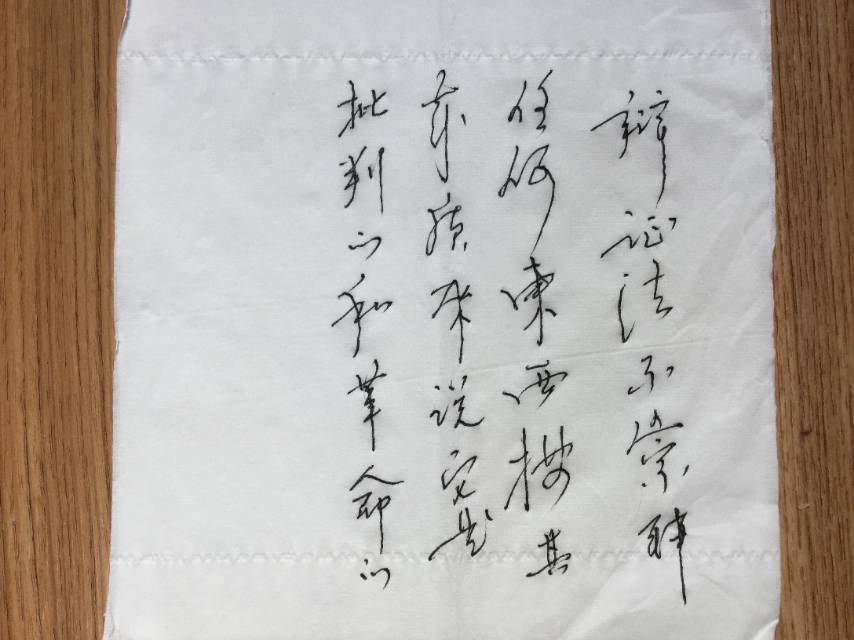 辩证法不崇拜
任何东西按其
本质来说它是
批判的和革命的